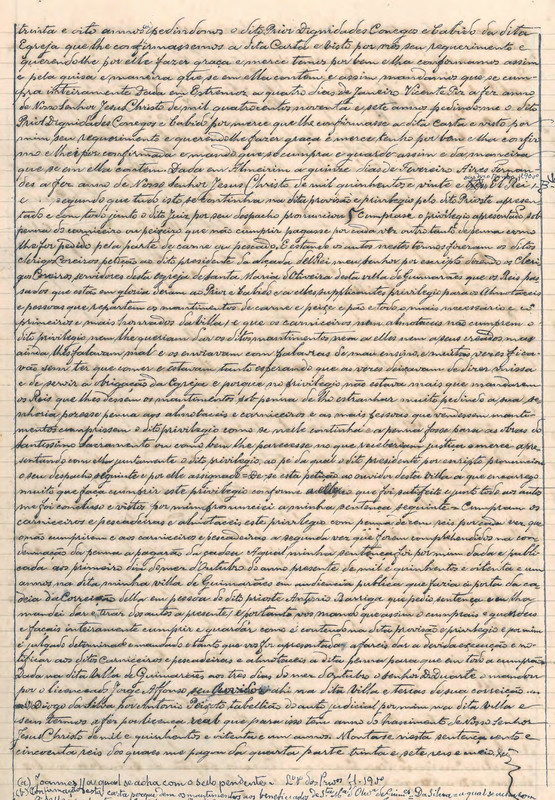 trinta e oito annos e pedindonos o dito Prior Dignidades Conegos e Cabido da dita
Egreja que lhe confirmassemos a dita Carta e visto por nós seu requerimento e
querendolhe por elle fazer graça e merce temos por bem e lha confirmamos assim
e pela guisa e maneira que se em ella contem e assim mandamos que se cum-
pra inteiramente Dada em Estremoz a quatro dias de Janeiro Vicente Pis a fez anno
de Nosso Senhor Jesus Christo de mil quatrocentos noventa e sete annos pedindome o dito
Prior Dignidades Conegos e Cabido por merce que lhe confirmasse a dita Carta e visto por
mim seu requerimento e querendolhe fazer graça e merce tenho por bem e lha confir-
mo e hei por confirmada e mando que se cumpra e guarde assim e da maneira
que se em ella contem Dada em Almeirim a quinze dias de Fevereiro Aires Fernan-
des a fez anno de Nosso Senhor Jesus Christo de mil quinhentos e vinte e
e segundo que tudo isto se continha na dita provisão e privilegio pelo dito Prioste apresen-
tado e com tudo junto o dito Juiz por seu despacho pronunciou Cumprase o privilegio apresentado sob
penna do carniceiro ou peixeiro que não cumprir pagasse por cada vez outro tanto de penna como
lhe for pedido pela parte de carne ou pescado. E estando os autos nestes termos fizeram os ditos
clerigos Coreiros petição ao dito presidente da alçada del Rei meu Senhor por escripto dizendo os Cleri-
gos Coreiros servidores desta egreja de Santa Maria d'Oliveira desta villa de Guimarães que os Reis pas-
sados que estão em gloria deram ao Prior e Cabido e a elles supplicantes privilegio para os Almotaceis
e pessoas que repartem os mantimentos de carne e peixe e pão e todo o mais necessario e os
primeiros e mais honrados da villa e que os carniceiros nem almotaceis não cumprem o
dito privilegio nem lhe queriam dar os ditos mantimentos nem a elles nem a seus creados mas
ainda lhes falavam mal e os enviavam com palavras de mau ensino e muitas vezes fica-
vão sem ter que comer e estavam tanto esperando que as vezes deixavam de dizer missa
e de servir a obrigação da Egreja e porque no privilegio não estava mais que mandarem
os Reis que lhes dessem os mantimentos sob penna de lho estranhar muito pedindo a sua se-
nhoria pozesse penna aos almotaceis e carniceiros e as mais pessoas que vendessem manti-
mentos cumprissem o dito privilegio como se nelle continha e a penna fosse para as obras do
Santissimo Sacramento ou como bem lhe parecesse no que receberiam justiça e merce apre-
sentando com ella juntamente o dito privilegio ao pé da qual o dito presidente por escripto pronunciou
o seu despacho seguinte e por elle assignado = De-se esta petição ao ouvidor desta villa a que encarrego
muito que faça cumprir este privilegio conforme a elle o que foi satisfeito e junto todo aos autos
me foi concluso e visto por mim pronunciei a minha sentença seguinte = Cumpram os
carniceiros e pescadeiras e almotaceis este privilegio com penna de cem reis por cada vez que
o não cumprirem e aos carniceiros e pescadeiras a segunda vez que forem comprehendidos na con-
demnação da penna a pagarão da cadea A qual minha sentença foi por mim dada e publi-
cada aos primeiro dia do mez d'Outubro do anno presente de mil e quinhentos e oitenta e um
annos na dita minha villa de Guimarães em audiencia publica que fazia a porta da ca-
deia da Correição della em pessoa do dito prioste Antonio Barriga que pediu sentença e eu lha
mandei dar e tirar dos autos a presente E portanto vos mando que assim o cumprais e guardeis
e façais inteiramente cumprir e guardar como é contendo na dita provisão e privilegio e por mim
é julgado determinado e mandado e tanto que vos for apresentado a fareis dar a devida execução e no-
tificar aos ditos Carniceiros e pescadeiras e almotaceis a dita penna para que em todo a cumpram
Dada na dita Villa de Guimarães aos tres dias do mez de Outubro o senhor D. Duarte o mandou
por o licenceado Jorge Affonso seu Ouvidor ahi na dita Villa e terras de sua correição
Diogo da Silva por Antonio Peixoto tabellião do auto judicial por mim na dita villa e
seus termos a fez por licença real que para isso tem anno do Nascimento de Nosso Senhor
Jesus Christo de mil e quinhentos e oitenta e um annos. Montase nesta sentença cento e
cincoenta reis dos quaes me pagou da quarta parte trinta e sete reis e meio
(a) Joannes // a qual se acha com o sello pendente =